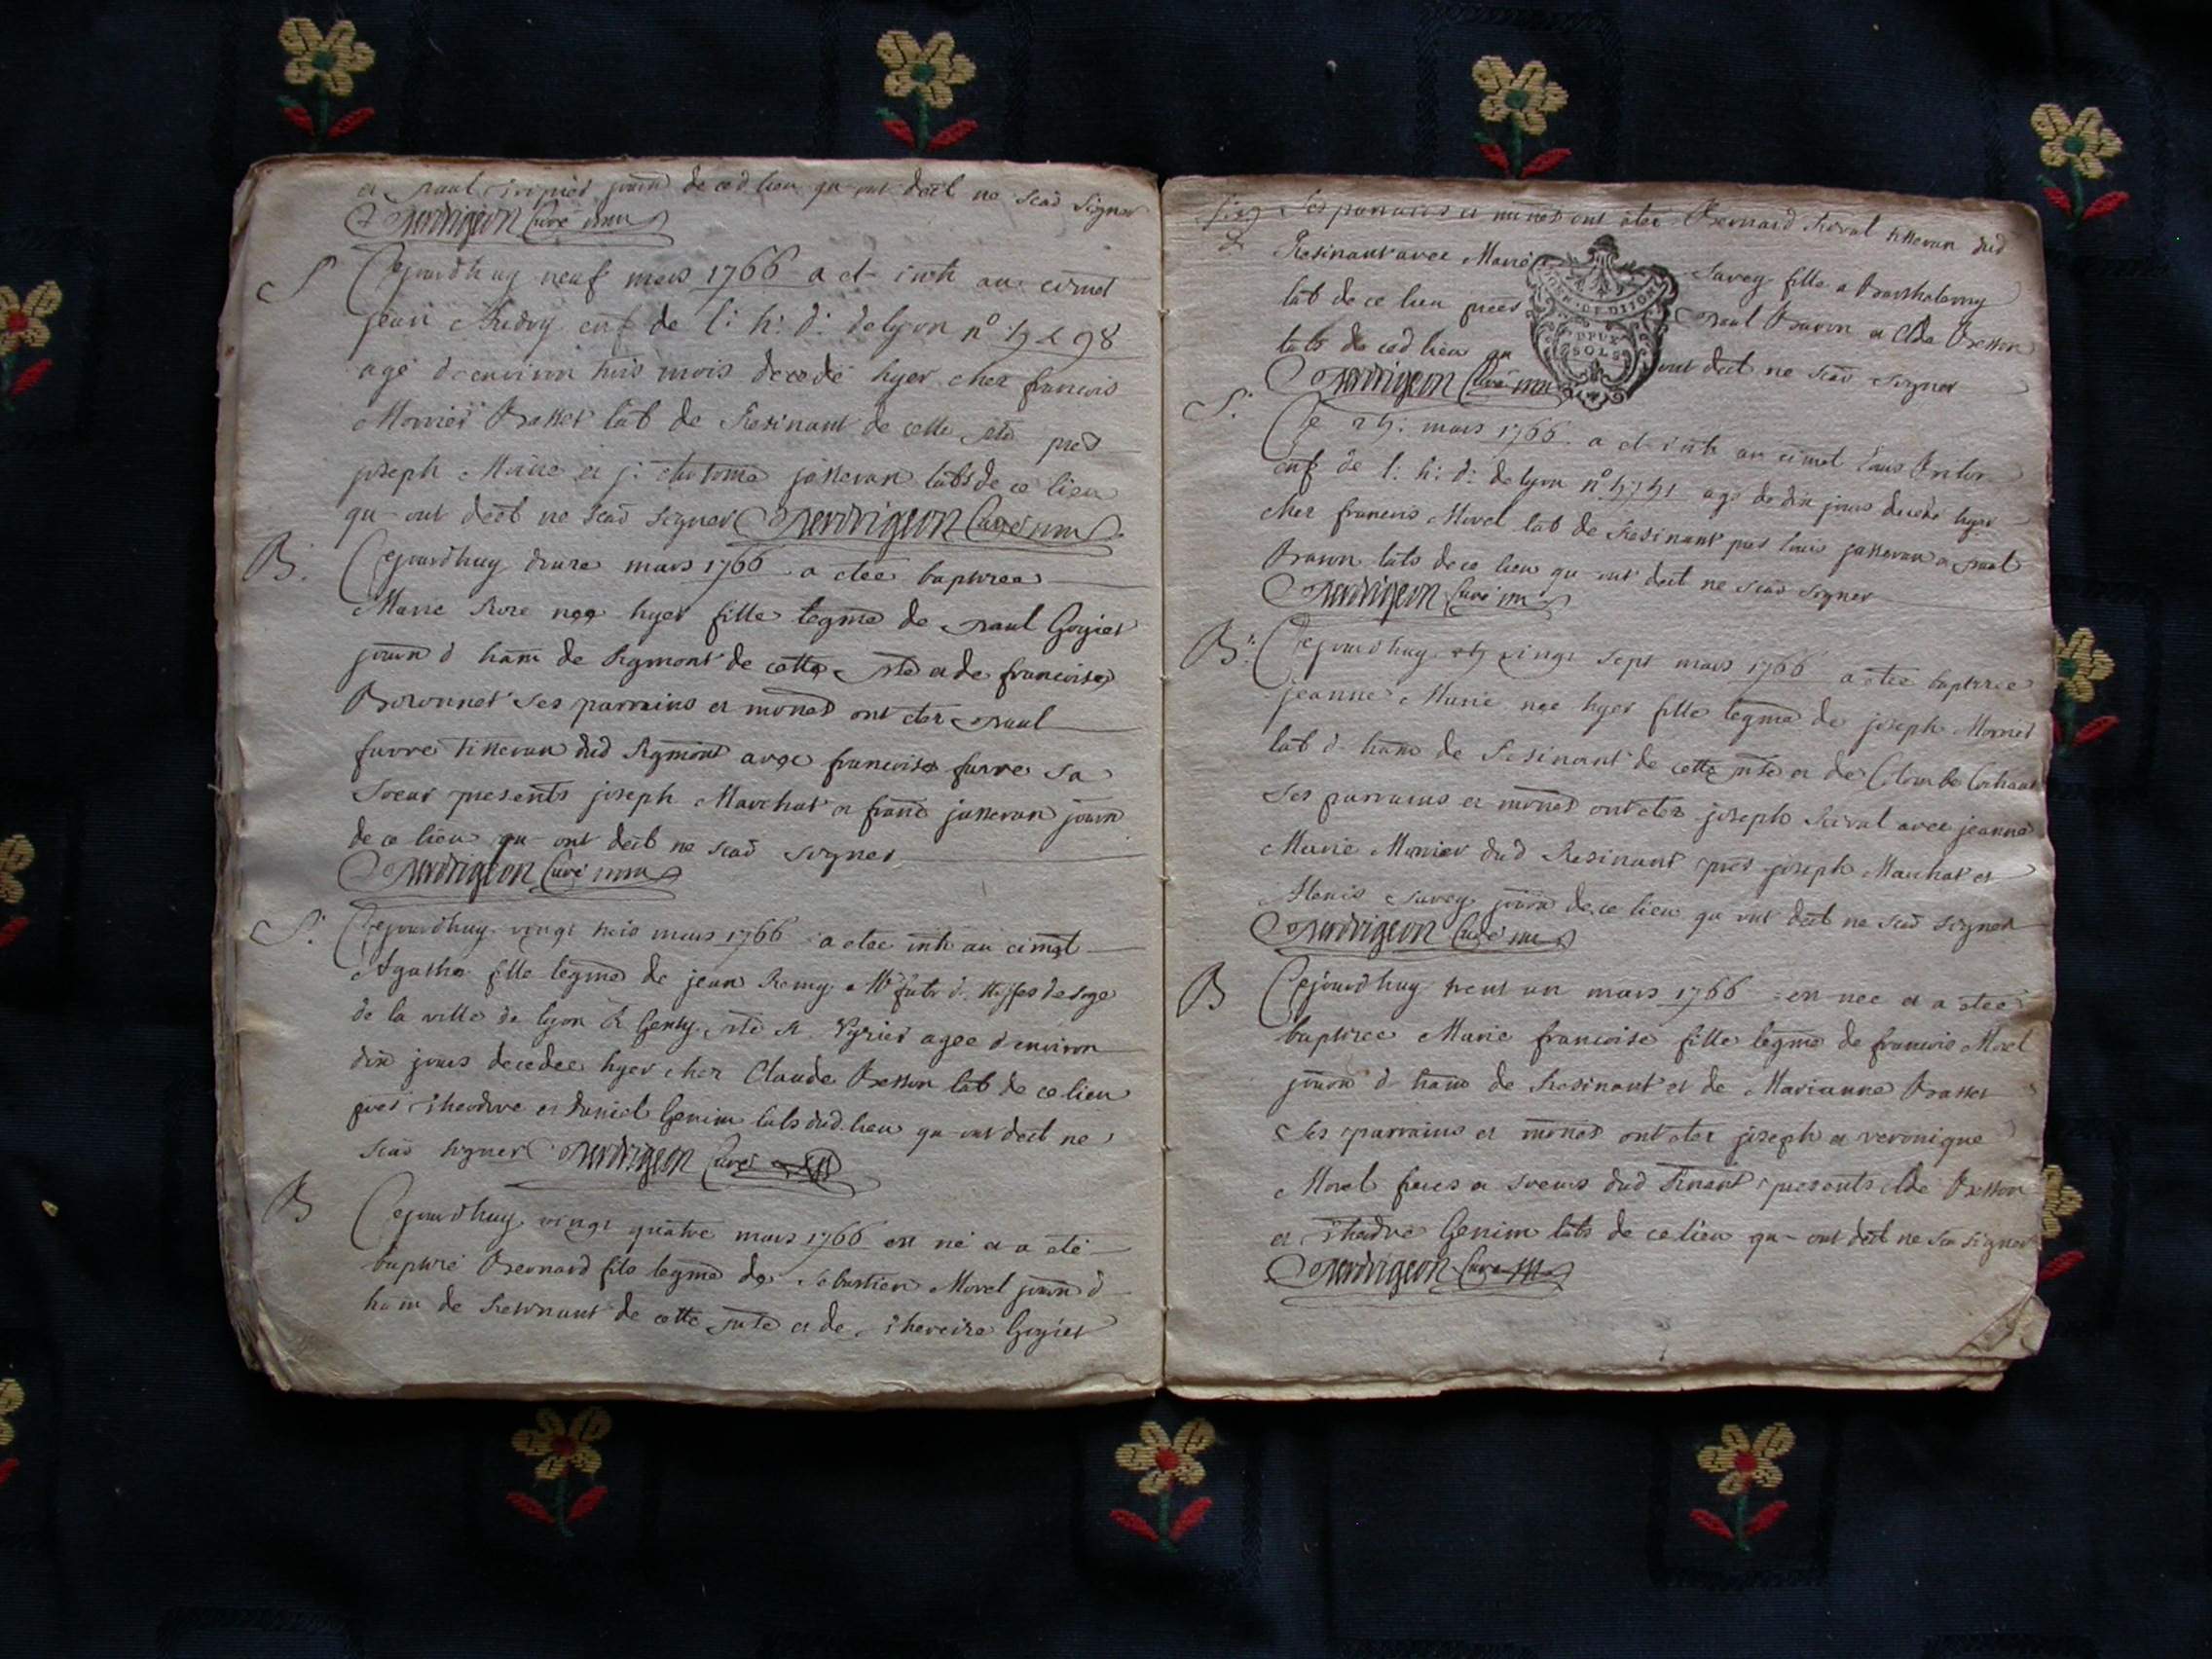 et paul journ de ced lieu qu ont declt ne scav signer
Perdrigeon Curé
S Cejourdhuy neuf mars 1766 a et inh au cimet
jean enf de l: h: d: de lyon n°
agé denviron huis mois decedé hyer chez francois
Morrier Basset lab de Resinant de cette pres
joseph et j: jasseran labs de ce lieu
qu ont declt ne scav signer Perdrigeon Curé
B: Cejourdhuy douze mars 1766 a etee baptizee
Marie Roze nee hyer fille legme de paul Gogier
journ d ham de Rigmont de cette pse et de francoise
Boronnet ses parrains et mrnes ont etez paul
favre tisseran dud Rigmont avec francoise favre sa
soeur presents joseph Marchat et franc jasseran journ
de ce lieu qu ont declt ne scav signer
Perdrigeon Curé
S: Cejourdhuy vingt trois mars 1766 a etee inh au cimet
Agathe fille legme de jean Remy d'etoffes de soye
de la ville de lyon pse St agee denviron
dix jours decedee hyer chez Claude Besson lab de ce lieu
pres theodore et daniel Genim labs dud lieu qu ont declt ne
scav signer Perdrigeon Curé
B Cejourdhuy vingt quatre mars 1766 est né et a eté
baptizé Bernard fils legme de sebastien Morel journ d
ham de Resinant de cette pse et de thereize Gogier
Ses parrains et mrnes ont etez Bernard Rival tisseran dud
Resinant avec Marie Savey fille a Barthelemy
lab de ce lieu pres paul Baron et Clde Besson
labs de ced lieu qu ont declt ne scav signer
DEUX
SOLS
Perdrigeon Curé
S: Ce mars 1766 a et inh au cimet
enf de l: h: d: de lyon n° agé de dix jours decedé hyer
chez francois Morel lab de Resinant pres louis jasseran et paul
Baron labs de ce lieu qu ont declt ne scav signer
Perdrigeon Curé
B: Cejourdhuy vingt sept mars 1766 a etee baptizee
jeanne Marie nee hyer fille legme de joseph Morrier
lab d ham de Resinant de cette pse et de Colombe
ses parrains et mrnes ont etez joseph Rival avec jeanne
Marie Morrier dud Resinant pres joseph Marchat et
Savey journ de ce lieu qu ont declt ne scav signer
Perdrigeon Curé
B Cejourdhuy trent un mars 1766 est nee et a etee
baptizee Marie francoise fille legme de francois Morel
journ d ham de Resinant et de Marianne Basset
Ses parrains et mrnes ont etez joseph et veronique
Morel freres et soeurs dud presents Clde Besson
et Genim labs de ce lieu qu ont declt ne scav signer
Perdrigeon Curé